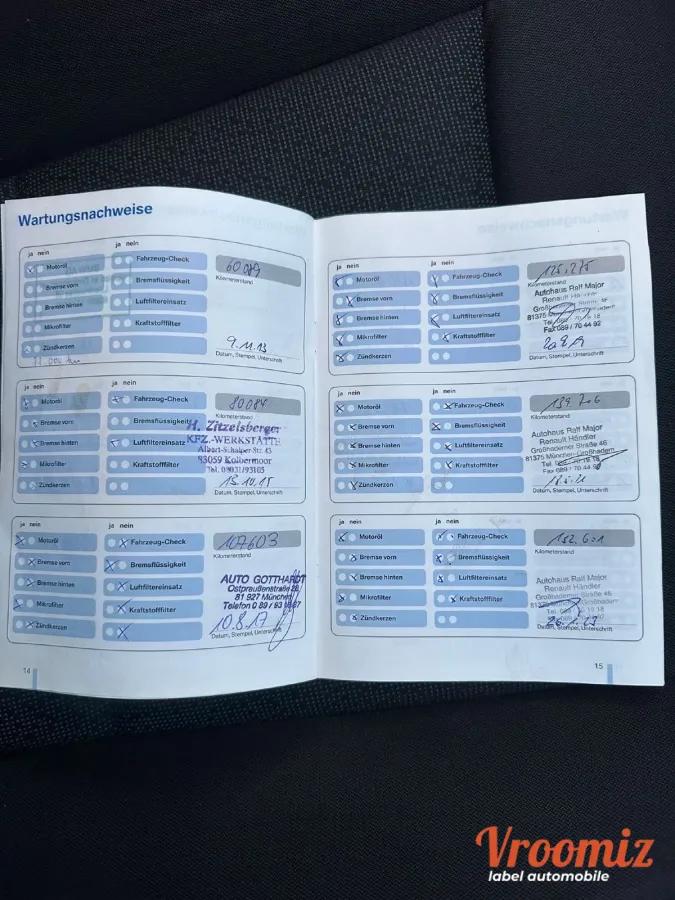 Wartungsnachweise
ja nein
ja nein
Motoröl
Fahrzeug-Check
60089
Kilometerstand
Bremse vorn
Bremsflüssigkeit
Bremse hinten
Luftfiltereinsatz
Mikrofilter
Kraftstofffilter
9.11.13
Zündkerzen
Datum, Stempel, Unterschrift
ja nein
ja nein
Motoröl
Fahrzeug-Check
80084
Kilometerstand
Bremse vorn
Bremsflüssigkeit
H. Zitzelsberger
Bremse hinten
Luftfiltereinsatz
KFZ.-WERKSTÄTTE
Albert-Schalper-Str. 43
83059 Kolbermoor
Mikrofilter
Kraftstofffilter
Tel. 08031/93105
13.10.15
Zündkerzen
Datum, Stempel, Unterschrift
ja nein
ja nein
Motoröl
Fahrzeug-Check
107603
Kilometerstand
Bremse vorn
Bremsflüssigkeit
AUTO GOTTHARDT
Bremse hinten
Luftfiltereinsatz
Ostpreußenstraße
81 927 München
Mikrofilter
Kraftstofffilter
Telefon 0 89 / 93
10.8.17
Zündkerzen
Datum, Stempel, Unterschrift
14
ja nein
ja nein
Motoröl
Fahrzeug-Check
125.275
Kilometerstand
Bremse vorn
Bremsflüssigkeit
Autohaus Ralf Major
Renault Händler
Bremse hinten
Luftfiltereinsatz
81375
Tel.
Mikrofilter
Kraftstofffilter
Fax 089 / 70 44 92
Zündkerzen
Datum, Stempel, Unterschrift
ja nein
ja nein
Motoröl
Fahrzeug-Check
139.706
Kilometerstand
Bremse vorn
Bremsflüssigkeit
Autohaus Ralf Major
Renault Händler
Bremse hinten
Luftfiltereinsatz
Großhaderner Straße 46
81375 München-Großhadern
Mikrofilter
Kraftstofffilter
Tel. 089 / 70 19 18
Fax 089 / 70 44 92
Zündkerzen
Datum, Stempel, Unterschrift
ja nein
ja nein
Motoröl
Fahrzeug-Check
152.601
Kilometerstand
Bremse vorn
Bremsflüssigkeit
Bremse hinten
Luftfiltereinsatz
Autohaus Ralf Major
Renault Händler
Großhaderner Straße 46
Mikrofilter
Kraftstofffilter
Zündkerzen
Datum, Stempel, Unterschrift
15
Vroomiz
label automobile